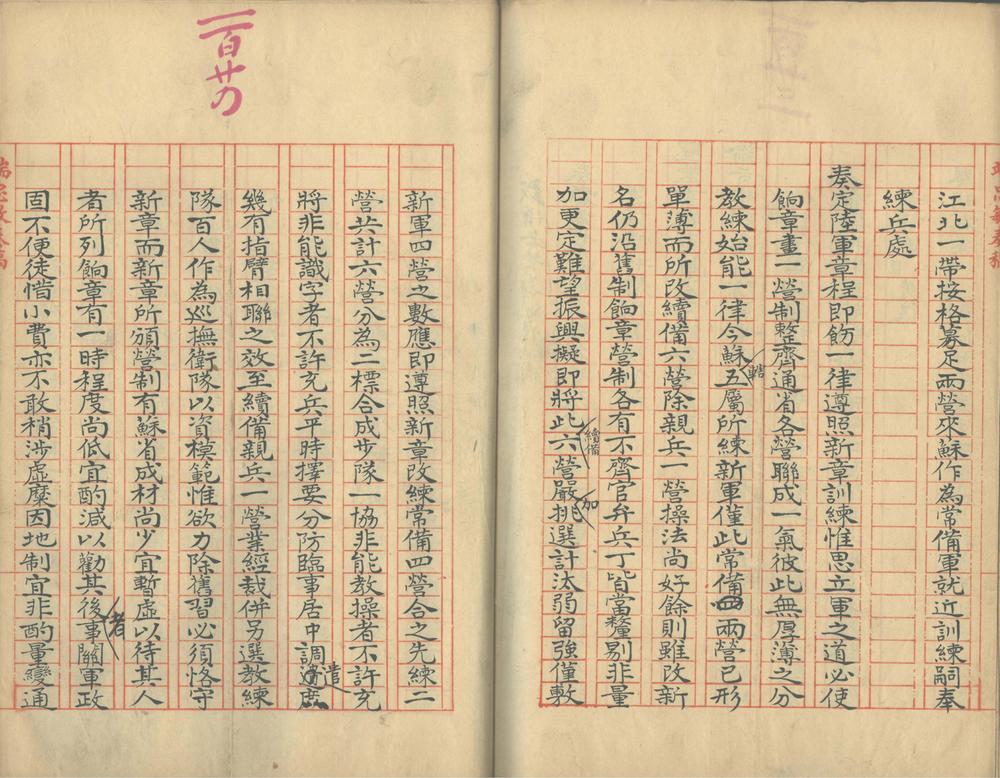 江北一帶按格募足兩營來蘇作為常備軍就近訓練嗣奉
練兵處
奏定陸軍章程即飭一律遵照新章訓練惟思立軍之道必使
餉章畫一營制整齊通省各營聯成一氣彼此無厚薄之分
教練始能一律今蘇轄五屬所練新軍僅此常備兩營已形
單薄而所改續備六營除親兵一營操法尚好餘則雖改新
名仍沿舊制餉章營制各有不齊官弁兵丁皆當釐剔非量
加更定難望振興擬即將此續備六營嚴加挑選計汰弱留強僅敷
一百廿九
新軍四營之數應即遵照新章改練常備四營合之先練二
營共計六營分為二標合成步隊一協非能教操者不許充
將非能識字者不許充兵平時擇要分防臨事居中調遣庶
幾有指臂相聯之效至續備親兵一營業經裁併另選教練
隊百人作為巡撫衛隊以資模範惟欲力除舊習必須恪守
新章而新章所頒營制有蘇省成材尚少宜暫虛以待其人
者所列餉章有一時程度尚低宜酌減以勸其後者事關軍政
固不便徒惜小費亦不敢稍涉虛糜因地制宜非酌量變通